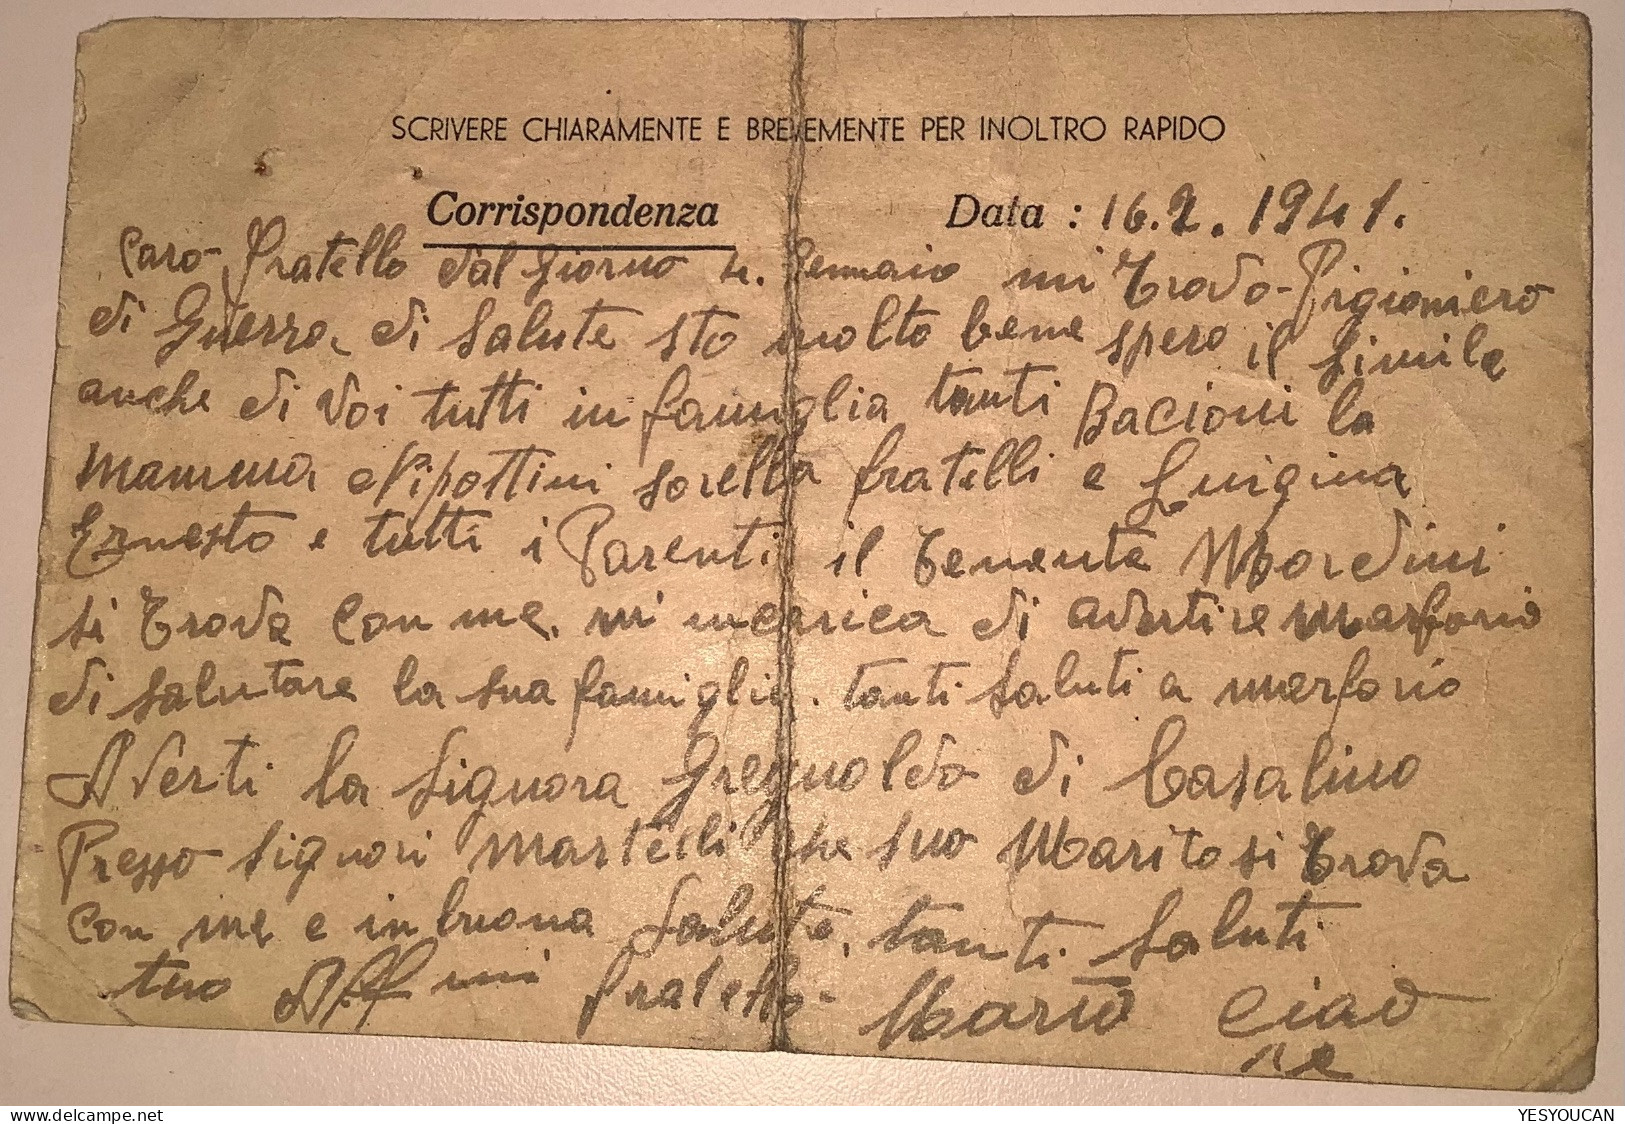 SCRIVERE CHIARAMENTE E BREVEMENTE PER INOLTRO RAPIDO
Corrispondenza Data : 16.2.1941.
Caro-Fratello dal Giorno 4. Gennaio mi trovo-Prigioniero
di Guerra, di Salute sto molto bene spero il simile
anche di voi tutti in famiglia tanti Bacioni la
mamma Nipottini sorella fratelli e Luigina
Ernesto e tutti i Parenti il tenente Mordini
si trova con me. mi incarica di avertire marforio
di salutare la sua famiglia. tanti saluti a marforio
Averti la Signora di Casalino
Presso Signori Martelli che suo Marito si trova
con me e in buona Salute, tanti Saluti
tuo Affmi fratello- Mario Ciao
YESYOUCAN